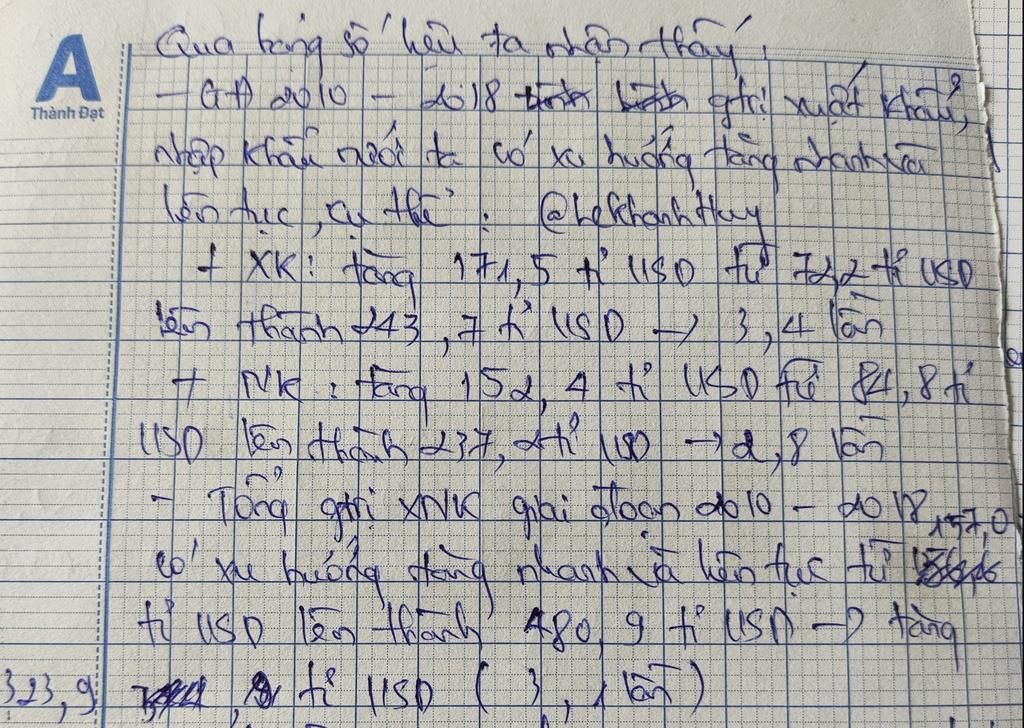 A
Thành Đạt
Qua bảng số liệu ta nhận thấy,
- GĐ 2010 - 2018 gtrị xuất khẩu,
nhập khẩu nước ta có xu hướng tăng nhanh và
liên tục, cụ thể : @lekhanhHuy
+ XK: tăng 171,5 tỉ USD từ 72,2 tỉ USD
lên thành 243,7 tỉ USD → 3,4 lần
+ NK: tăng 152,4 tỉ USD từ 84,8 tỉ
USD lên thành 237,2 tỉ USD → 2,8 lần
- Tổng gtrị XNK giai đoạn 2010 - 2018
có xu hướng tăng nhanh và liên tục từ 157,0
tỉ USD lên thành 480,9 tỉ USD → tăng
323,9 tỉ USD (3,1 lần)